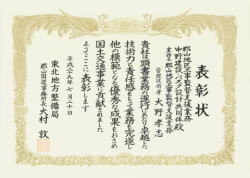 表彰状
郡山地区工事監督支援業務
中野建設・パスク設計共同体殿
管理技術者 大野孝志
貴社は頭書業務の遂行にあたり卓越した
技術力と責任感をもって業務を完遂し
他の模範となる優秀な成果をおさめ
国土交通事業に貢献されました
よってここに表彰します
平成二十九年七月二十日
東北地方整備局
郡山国道事務所長 大村敦